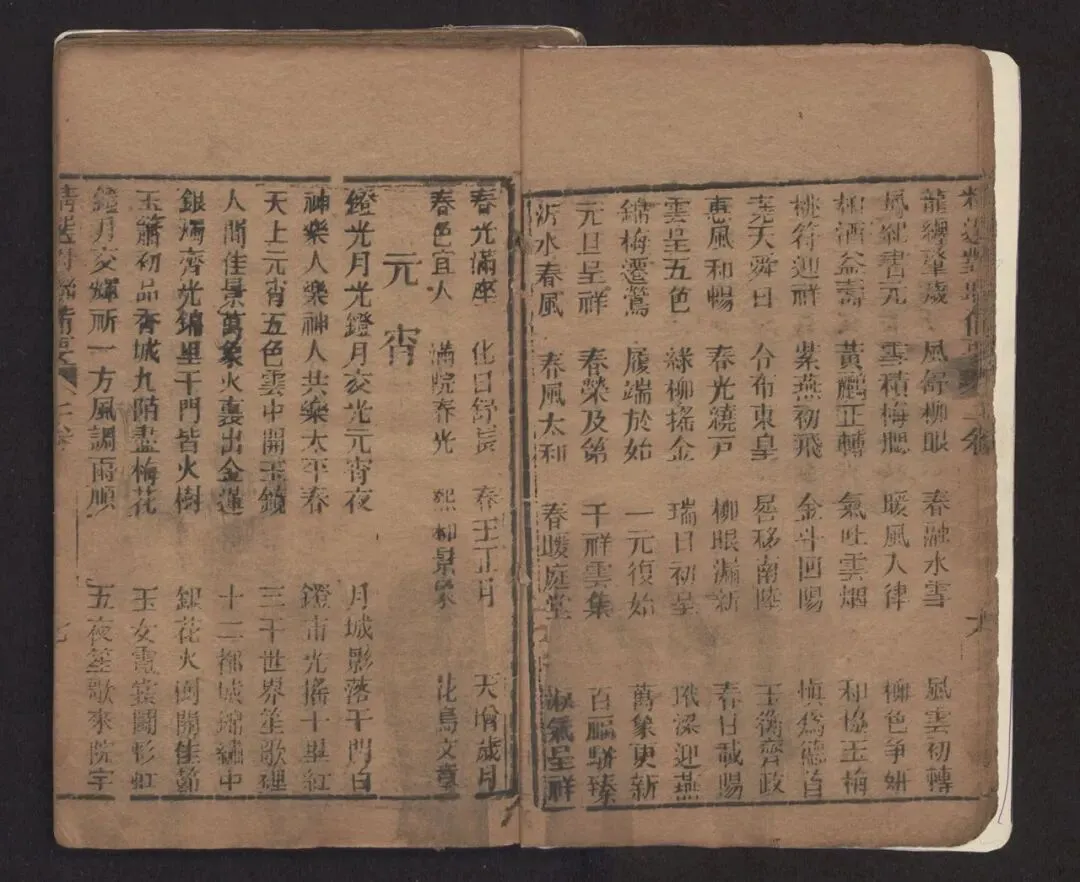 龍纏肇歲 風舒柳眼 春融水雪 風雲初轉
鳳紀書元 雲積梅腮 暖風入律 柳色爭妍
柏酒益壽 黃鸝正轉 氣吐雲烟 和協玉梅
桃符迎祥 紫燕初飛 金斗回陽 慎為德首
堯天舜日 令布東皇 晷移南陸 玉衡齊政
惠風和暢 春光繞戶 柳眼漏新 春日載陽
雲呈五色 綠柳搖金 瑞日初呈 珉梁迎燕
錦梅遷鶯 履端於始 一元復始 萬象更新
元旦呈祥 春榮及第 千祥雲集 百福駢臻
沂水春風 春風太和 春暖庭堂 淑氣呈祥
春光滿座 化日舒長 春王正月 天增歲月
春色宜人 滿院春光 熙和景象 花鳥文章
元宵
鐙光月光鐙月交光元宵夜 月城影落千門白
神樂人樂神人共樂太平春 鐙市光搖十里紅
天上元宵五色雲中開玉鏡 三千世界笙歌裡
人間佳景萬象火裏出金蓮 十二都城錦繡中
銀燭齊光錦里千門皆火樹 銀花火樹開佳節
玉簫初品香城九陌盡梅花 玉女霓裳鬪彩虹
鐙月交輝祈一方風調雨順 五夜笙歌來院宇
精選對聯備要 上卷 七